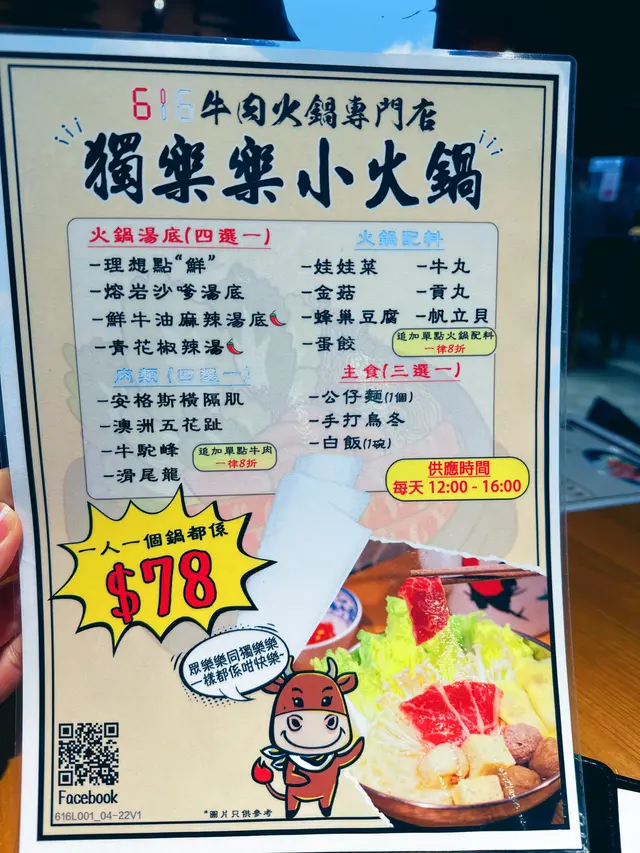 616牛肉火鍋專門店
獨樂樂小火鍋
火鍋湯底(四選一)
-理想點“鮮”
-熔岩沙嗲湯底
-鮮牛油麻辣湯底
-青花椒辣湯
肉類(四選一)
-安格斯橫隔肌
-澳洲五花趾
-牛駝峰
追加單點牛肉
一律8折
-滑尾龍
火鍋配料
-娃娃菜
-牛丸
-金菇
-貢丸
-蜂巢豆腐
-帆立貝
-蛋餃
追加單點火鍋配料
一律8折
主食(三選一)
-公仔麵(1個)
-手打烏冬
-白飯(1碗)
供應時間
每天 12:00 - 16:00
一人一個鍋都係
$78
眾樂樂同獨樂樂
一樣都係咁快樂~
Facebook
616L001_04-22V1
*圖片只供參考